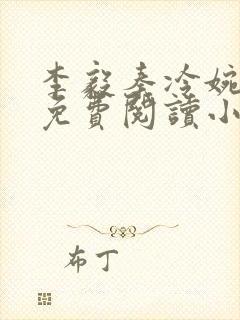 李毅秦冷婉
免費閱讀小
布丁